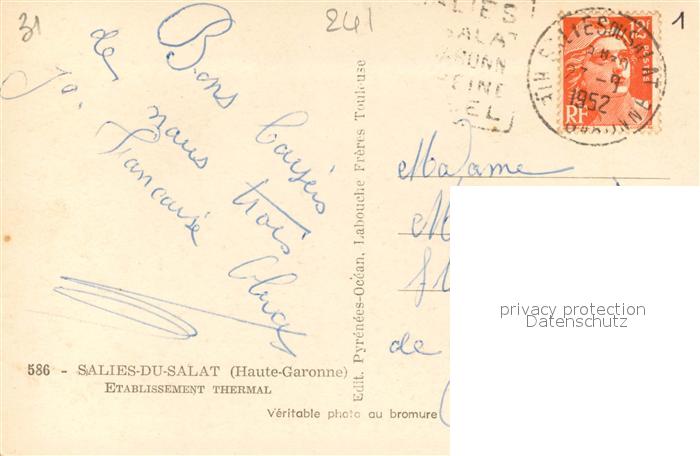 31
241
1
Bons baisers
de nous trois
Francaise
SALIES
SALAT
GARONN
SEL
SALIES DU SALAT
27 -9
1952
GARONNE
12F
POSTES
RF
Madame
M
de
privacy protection
Datenschutz
Edit. Pyrénées-Océan, Labouche Frères Toulouse
586 - SALIES-DU-SALAT (Haute-Garonne)
ETABLISSEMENT THERMAL
Véritable photo au bromure